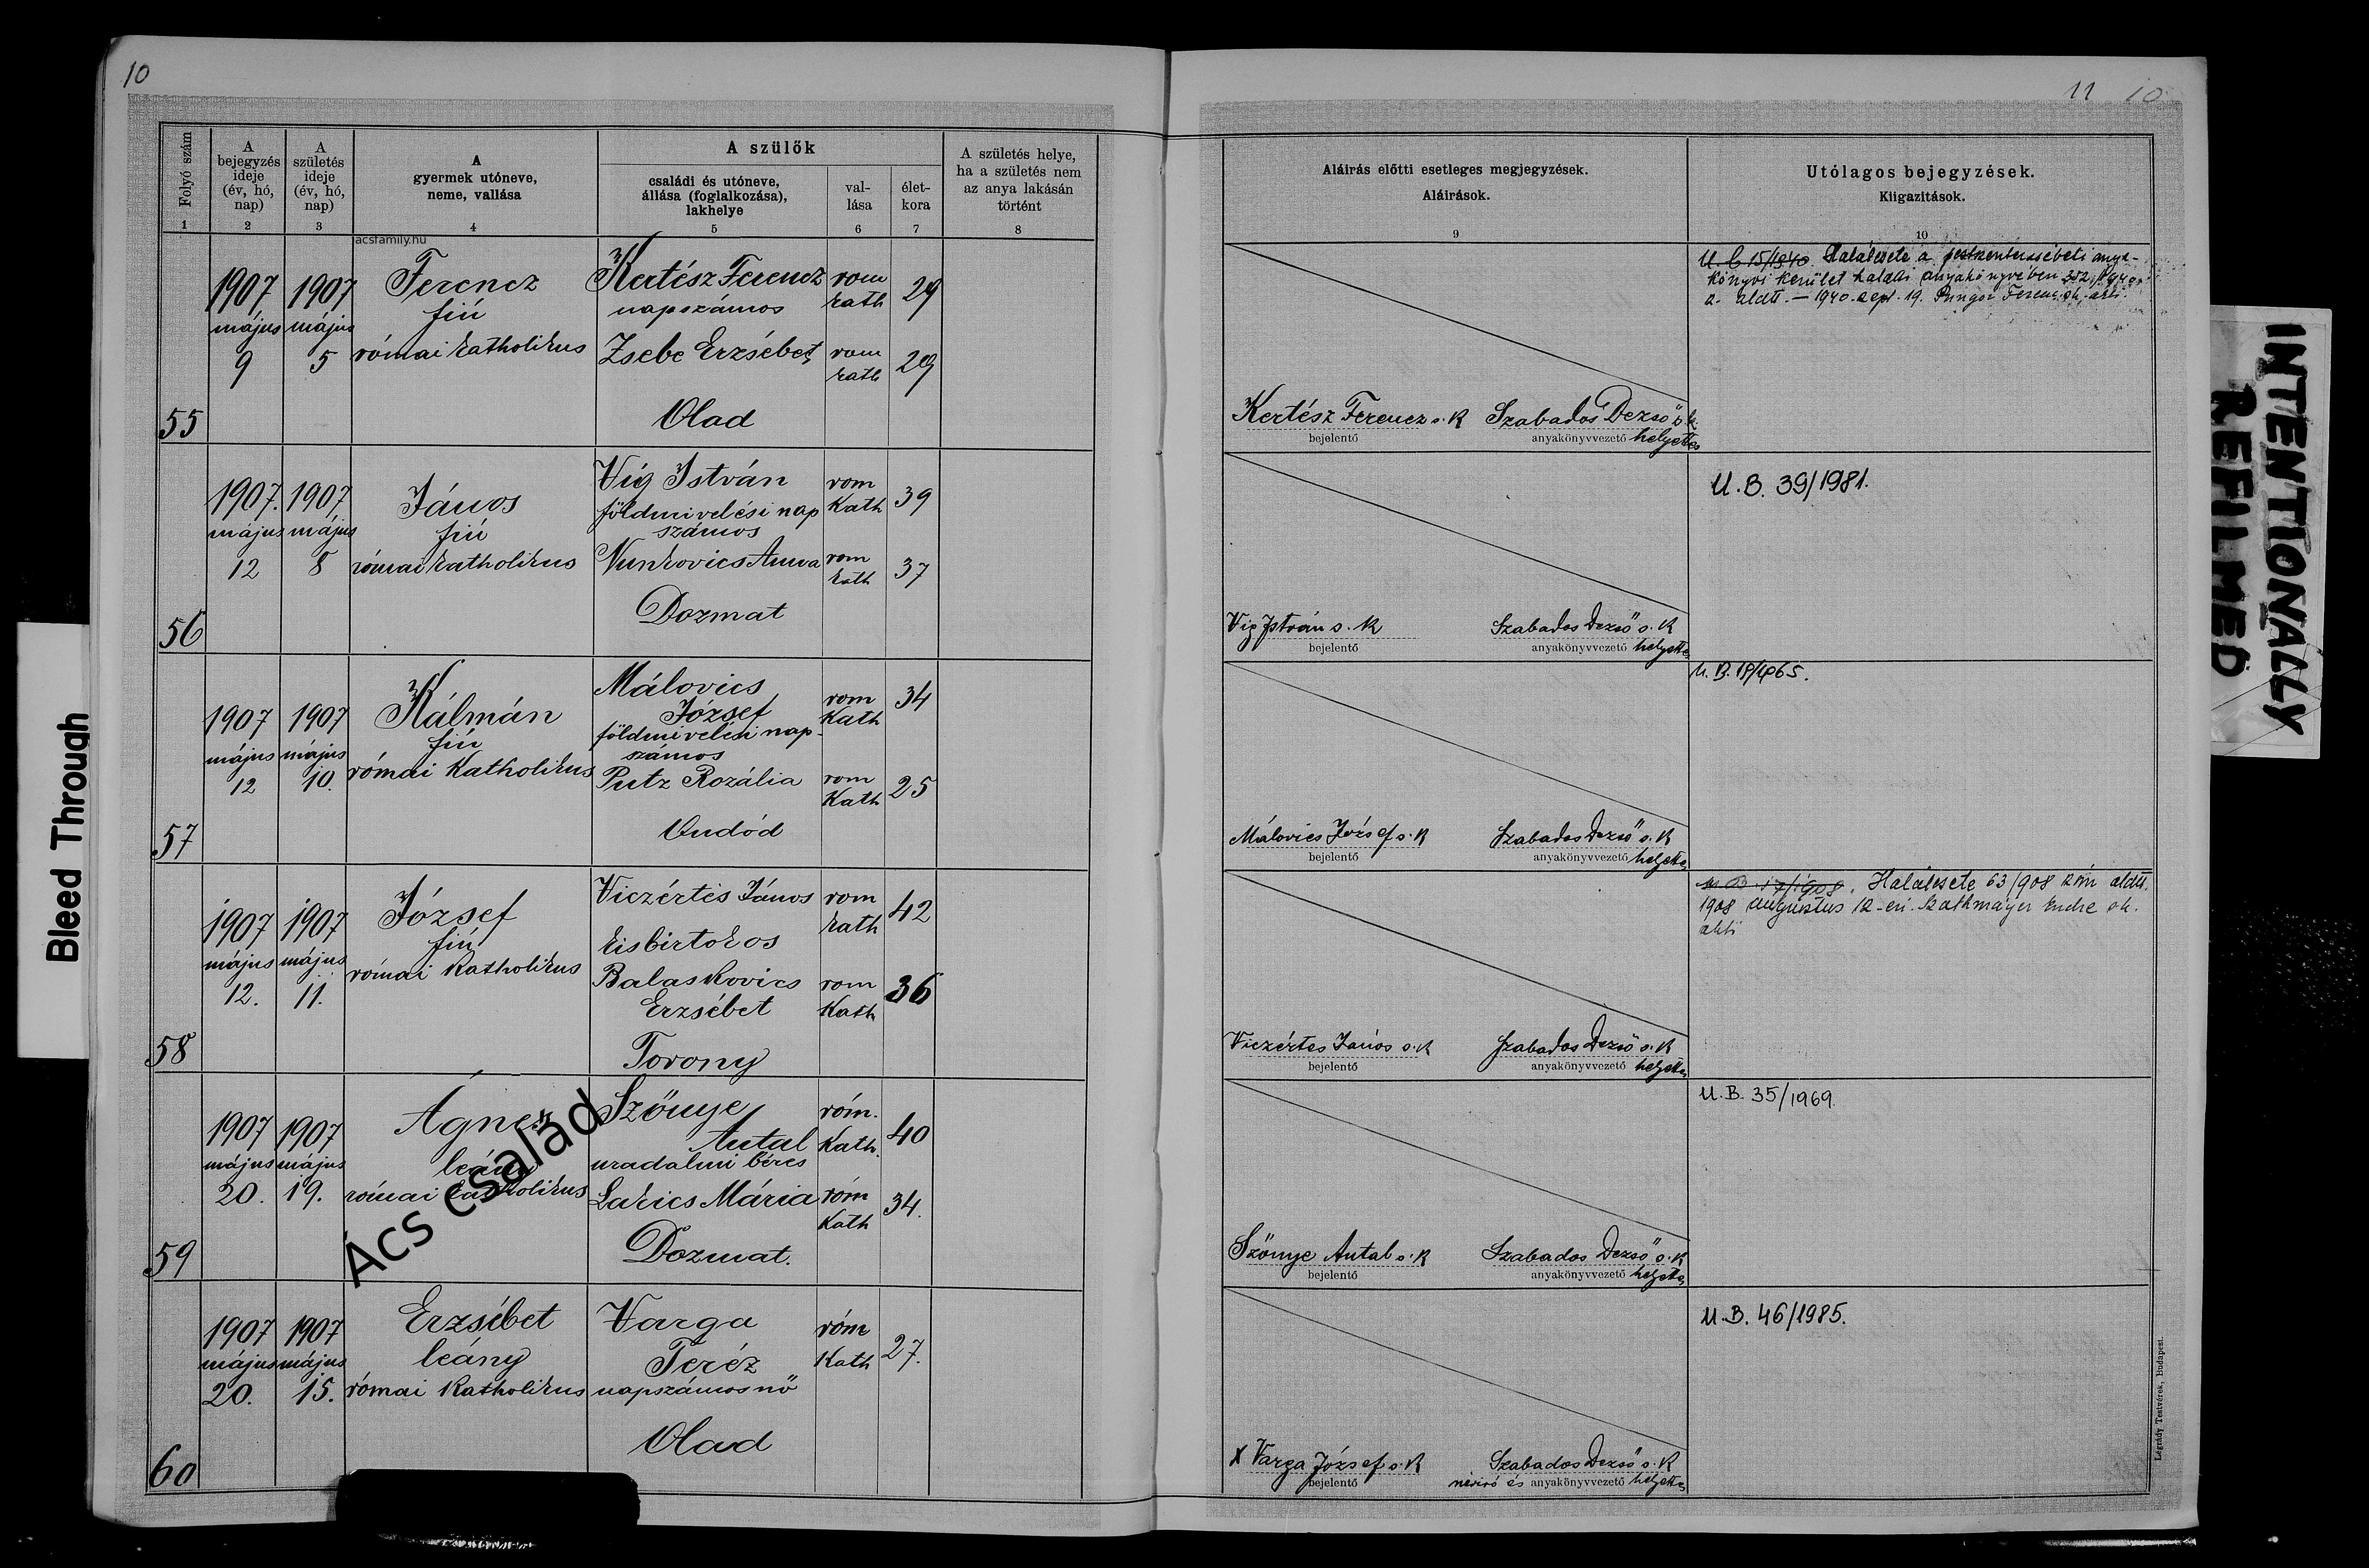 10
11 10
Folyó szám
A
bejegyzés
ideje
(év, hó,
nap)
A
születés
ideje
(év, hó,
nap)
A
gyermek utóneve,
neme, vallása
A szülők
családi és utóneve,
állása (foglalkozása),
lakhelye
val-
lása
élet-
kora
A születés helye,
ha a születés nem
az anya lakásán
történt
Aláirás előtti esetleges megjegyzések.
Aláirások.
Utólagos bejegyzések.
Kiigazitások.
1 2 3 4 5 6 7 8 9 10
acsfamily.hu
55
1907
május
9
1907
május
5
Ferencz
fiú
római katholikus
Kertész Ferencz
napszámos
Zsebe Erzsébet
Olad
rom
kath
29
rom
kath
29
Kertész Ferencz s. k
bejelentő
Szabados Dezső s. k.
anyakönyvvezető helyettes
Halálesete a
könyvi kerület halotti anyakönyvében
a. aldtt. — 1940. sept. 19. Pungor Ferenc
56
1907.
május
12
1907
május
8
János
fiú
római katholikus
Vig István
földmivelési nap
számos
Vunkovics Anna
Dozmat
rom
Kath
39
rom
kath
37
Vig István s. k
bejelentő
Szabados Dezső s. k
anyakönyvvezető helyettes
U. B. 39/1981.
57
1907
május
12
1907
május
10.
Kálmán
fiú
római Katholikus
Málovics
József
földmivelési nap-
számos
Putz Rozália
Ondód
rom
Kath
34
rom
Kath
25
Málovics József s. k
bejelentő
Szabados Dezső s. k
anyakönyvvezető helyettes
U. B.
58
1907
május
12.
1907
május
11.
József
fiú
római Katholikus
Viczértis János
kisbirtokos
Balaskovics
Erzsébet
Torony
rom
kath
42
rom
Kath
36
Viczértes János s. k
bejelentő
Szabados Dezső s. k
anyakönyvvezető helyettes
17/1908. Halálesete 63/908 szám aldtt.
1908 augusztus 12-én. Szathmáyer Endre s. k.
59
1907
május
20.
1907
május
19.
Ágnes
leány
római katholikus
Szőnye
Antal
uradalmi béres
Lakics Mária
Dozmat.
róm.
Kath.
40
róm
Kath
34.
Szőnye Antal s. k
bejelentő
Szabados Dezső s. k
anyakönyvvezető helyettes
U. B. 35/1969.
60
1907
május
20.
1907
május
15.
Erzsébet
leány
római Katholikus
Varga
Teréz
napszámosnő
Olad
róm
Kath
27.
X Varga József s. k
bejelentő
Szabados Dezső s. k
néviró és anyakönyvvezető helyettes
U. B. 46/1985.
Ács család
Légrády Testvérek, Budapest.
Bleed Through
INTENTIONALLY
REFILMED